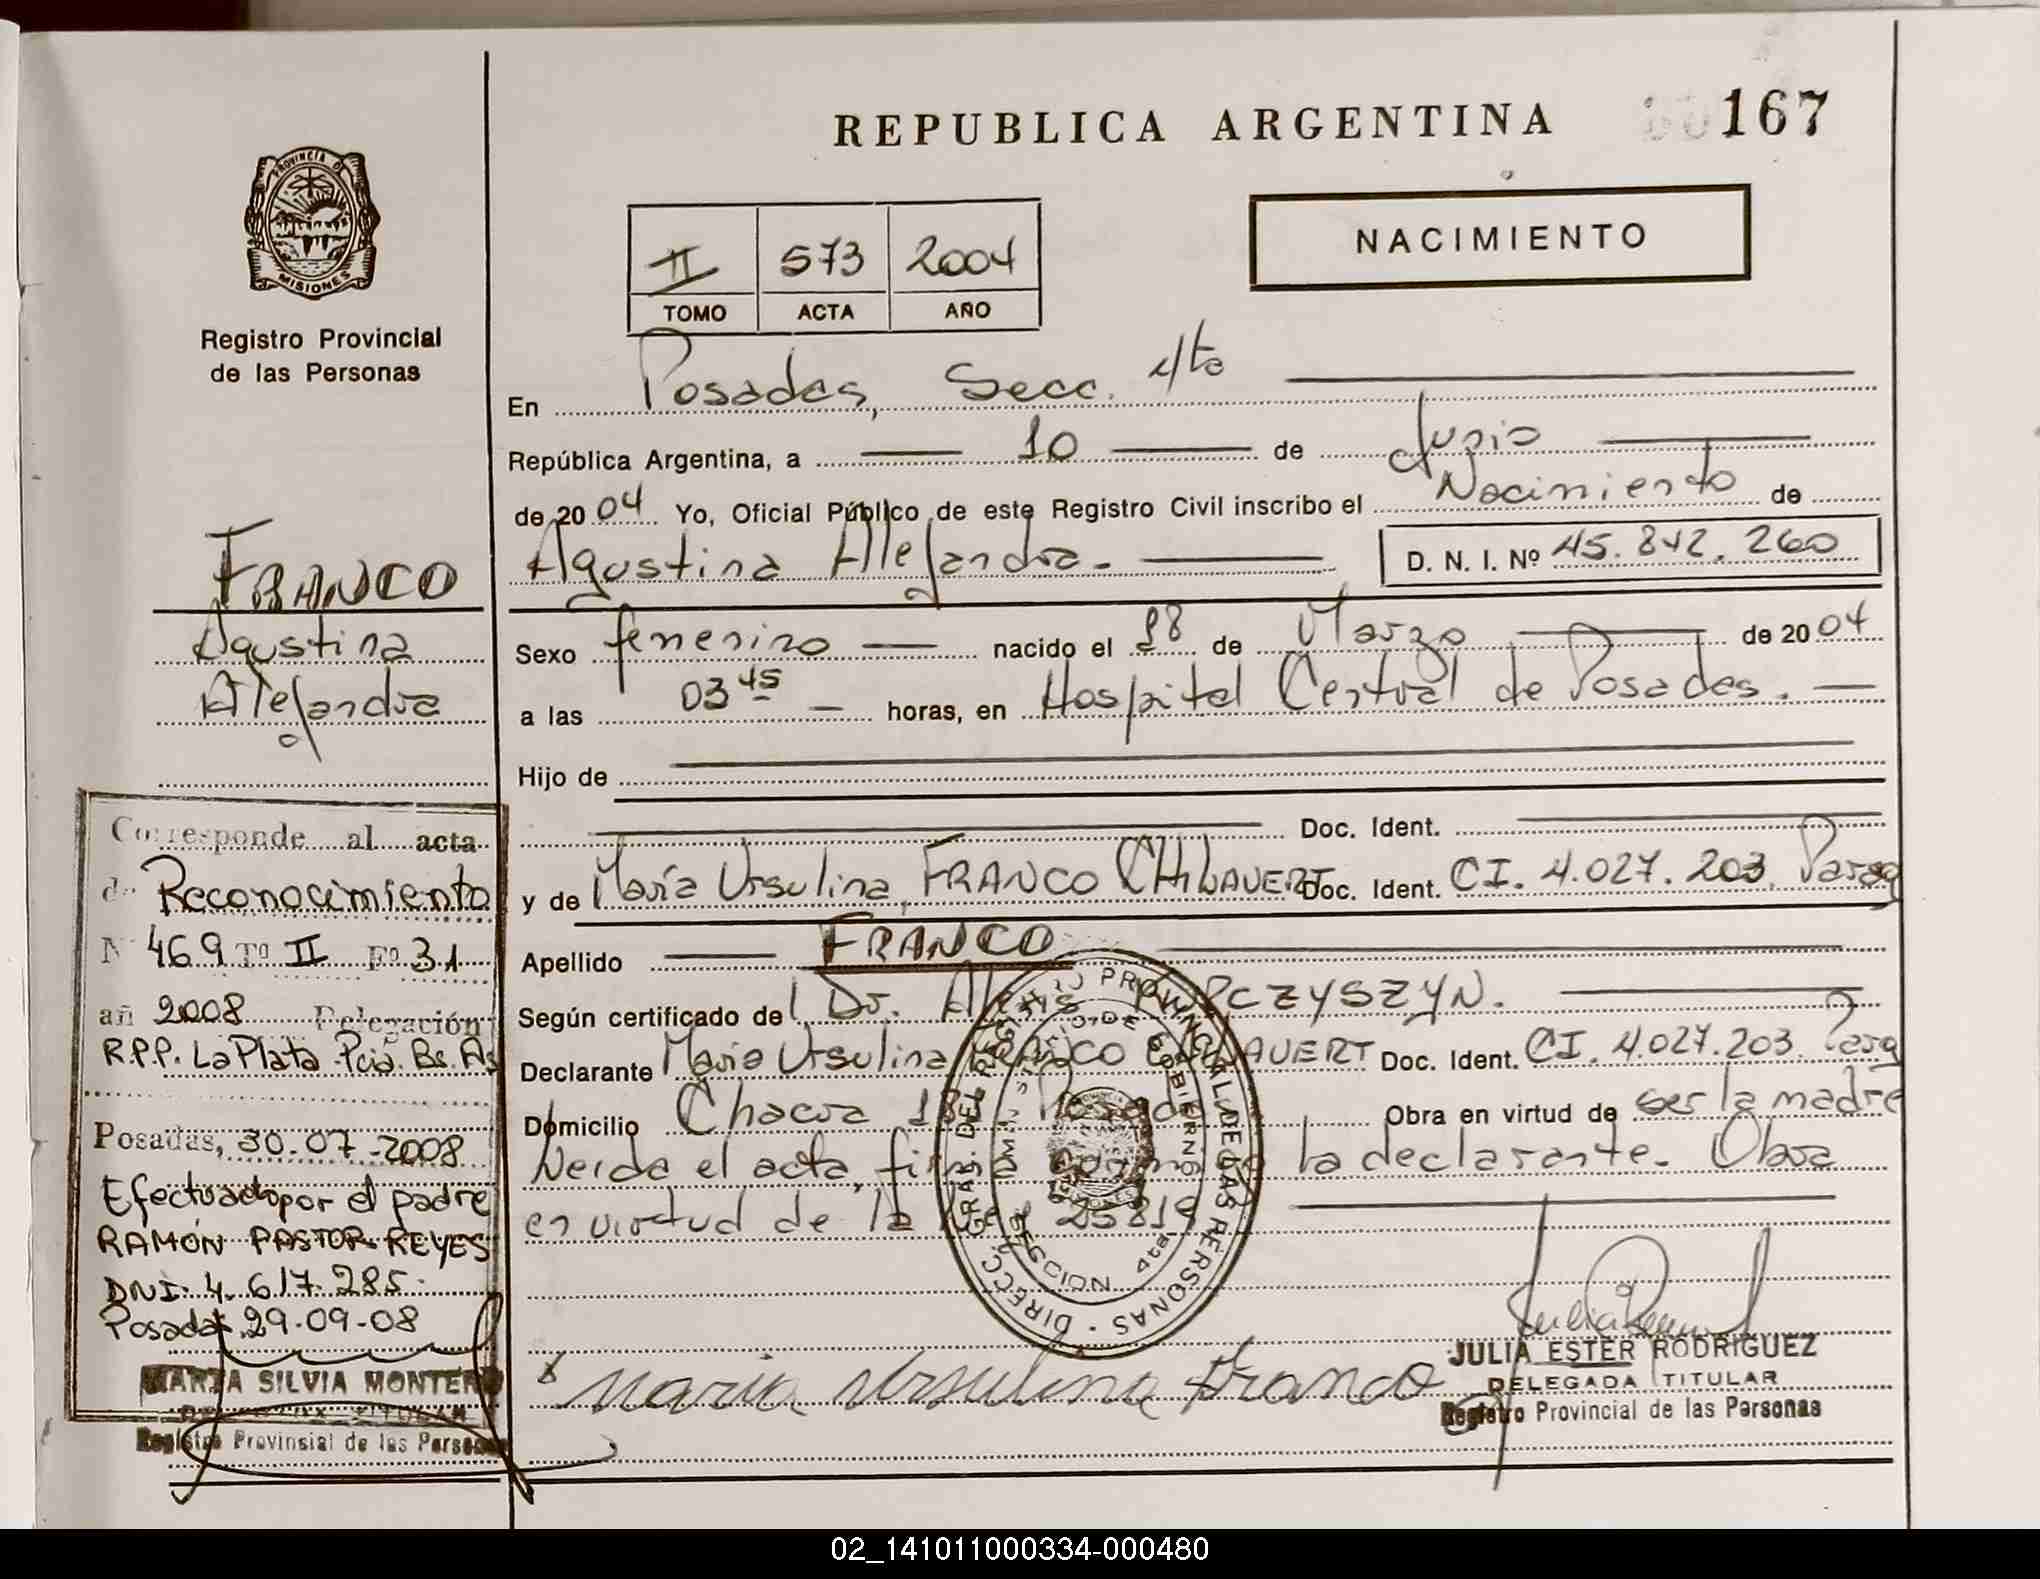 REPUBLICA ARGENTINA
167
PROVINCIA DE MISIONES
Registro Provincial
de las Personas
II 573 2004
TOMO ACTA AÑO
NACIMIENTO
En Posadas, Secc. 4ta
República Argentina, a 10 de Junio
de 2004 Yo, Oficial Público de este Registro Civil inscribo el Nacimiento de
Agustina Alejandra. D. N. I. Nº 45.842.260
FRANCO
Agustina
Alejandra
Sexo femenino nacido el 28 de Marzo de 2004
a las 03 45 horas, en Hospital Central de Posadas.
Hijo de
Doc. Ident.
y de María Ursulina, FRANCO CHILAVERT Doc. Ident. CI. 4.027.203, Parag
Apellido FRANCO
Según certificado de Dr.
Declarante María Ursulina FRANCO CHILAVERT Doc. Ident. CI. 4.027.203. Parag
Domicilio Chacra Posadas Obra en virtud de ser la madre
Leída el acta, la declarante. Obra
en virtud de la 25819
Corresponde al acta
de Reconocimiento
Nº 469 Tº II Fº 31
añ 2008 Delegación
R.P.P. La Plata Pcia. Bs. As
Posadas, 30-07-2008
Efectuado por el padre
RAMÓN PASTOR REYES
DNI: 4.617.285.
Posadas 29-09-08
MARIA SILVIA MONTERO
DELEGADA TITULAR
Registro Provincial de las Personas
DIRECC. GRAL. DEL REGISTRO PROVINCIAL DE LAS PERSONAS
MINISTERIO DE GOBIERNO
SECCION 4ta
x Maria Ursulina Franco
JULIA ESTER RODRIGUEZ
DELEGADA TITULAR
Registro Provincial de las Personas
02_141011000334-000480